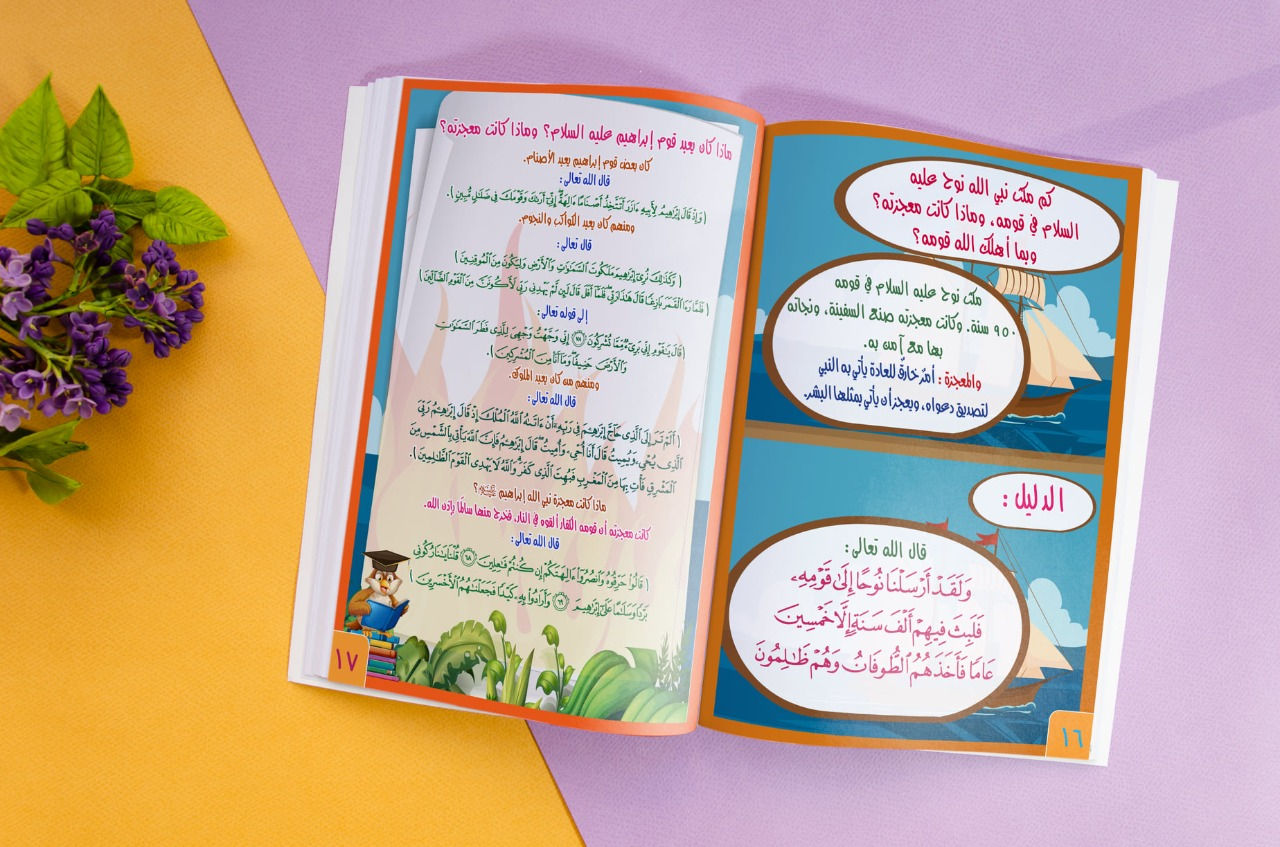 كم مكث نبي الله نوح عليه
السلام في قومه، وماذا كانت معجزته؟
وبما أهلك الله قومه؟
مكث نوح عليه السلام في قومه
٩٥٠ سنة. وكانت معجزته صنع السفينة، ونجاته
بها مع آمن به.
والمعجزة : أمرٌ خارقٌ للعادة يأتي به النبي
لتصديق دعواه، ويعجز أن يأتي بمثلها البشر.
الدليل :
قال الله تعالى :
وَلَقَدْ أَرْسَلْنَا نُوحًا إِلَىٰ قَوْمِهِۦ
فَلَبِثَ فِيهِمْ أَلْفَ سَنَةٍ إِلَّا خَمْسِينَ
عَامًا فَأَخَذَهُمُ ٱلطُّوفَانُ وَهُمْ ظَـٰلِمُونَ
١٦
ماذا كان يعبد قوم إبراهيم عليه السلام؟ وماذا كانت معجزته؟
كان بعض قوم إبراهيم يعبد الأصنام.
قال الله تعالى :
( وَإِذْ قَالَ إِبْرَٰهِيمُ لِأَبِيهِ ءَازَرَ أَتَتَّخِذُ أَصْنَامًا ءَالِهَةً إِنِّىٓ أَرَىٰكَ وَقَوْمَكَ فِى ضَلَـٰلٍ مُّبِينٍ ).
ومنهم كان يعبد الكواكب والنجوم.
قال تعالى :
( وَكَذَٰلِكَ نُرِىٓ إِبْرَٰهِيمَ مَلَكُوتَ ٱلسَّمَـٰوَٰتِ وَٱلْأَرْضِ وَلِيَكُونَ مِنَ ٱلْمُوقِنِينَ )
( فَلَمَّا رَءَا ٱلْقَمَرَ بَازِغًا قَالَ هَـٰذَا رَبِّى فَلَمَّآ أَفَلَ قَالَ لَئِن لَّمْ يَهْدِنِى رَبِّى لَأَكُونَنَّ مِنَ ٱلْقَوْمِ ٱلضَّآلِّينَ )
إلى قوله تعالى :
( قَالَ يَـٰقَوْمِ إِنِّى بَرِىٓءٌ مِّمَّا تُشْرِكُونَ ٧٨ إِنِّى وَجَّهْتُ وَجْهِىَ لِلَّذِى فَطَرَ ٱلسَّمَـٰوَٰتِ
وَٱلْأَرْضَ حَنِيفًا وَمَآ أَنَا۠ مِنَ ٱلْمُشْرِكِينَ ).
ومنهم من كان يعبد الملوك.
قال الله تعالى :
( أَلَمْ تَرَ إِلَى ٱلَّذِى حَآجَّ إِبْرَٰهِيمَ فِى رَبِّهِۦٓ أَنْ ءَاتَىٰهُ ٱللَّهُ ٱلْمُلْكَ إِذْ قَالَ إِبْرَٰهِيمُ رَبِّىَ
ٱلَّذِى يُحْىِۦ وَيُمِيتُ قَالَ أَنَا۠ أُحْىِۦ وَأُمِيتُ قَالَ إِبْرَٰهِيمُ فَإِنَّ ٱللَّهَ يَأْتِى بِٱلشَّمْسِ مِنَ
ٱلْمَشْرِقِ فَأْتِ بِهَا مِنَ ٱلْمَغْرِبِ فَبُهِتَ ٱلَّذِى كَفَرَ وَٱللَّهُ لَا يَهْدِى ٱلْقَوْمَ ٱلظَّـٰلِمِينَ ).
ماذا كانت معجزة نبي الله إبراهيم ﷺ؟
كانت معجزته أن قومه الكفار ألقوه في النار، فخرج منها سالمًا بإذن الله.
قال الله تعالى :
( قَالُوا۟ حَرِّقُوهُ وَٱنصُرُوٓا۟ ءَالِهَتَكُمْ إِن كُنتُمْ فَـٰعِلِينَ ٦٨ قُلْنَا يَـٰنَارُ كُونِى
بَرْدًا وَسَلَـٰمًا عَلَىٰٓ إِبْرَٰهِيمَ ٦٩ وَأَرَادُوا۟ بِهِۦ كَيْدًا فَجَعَلْنَـٰهُمُ ٱلْأَخْسَرِينَ )
١٧